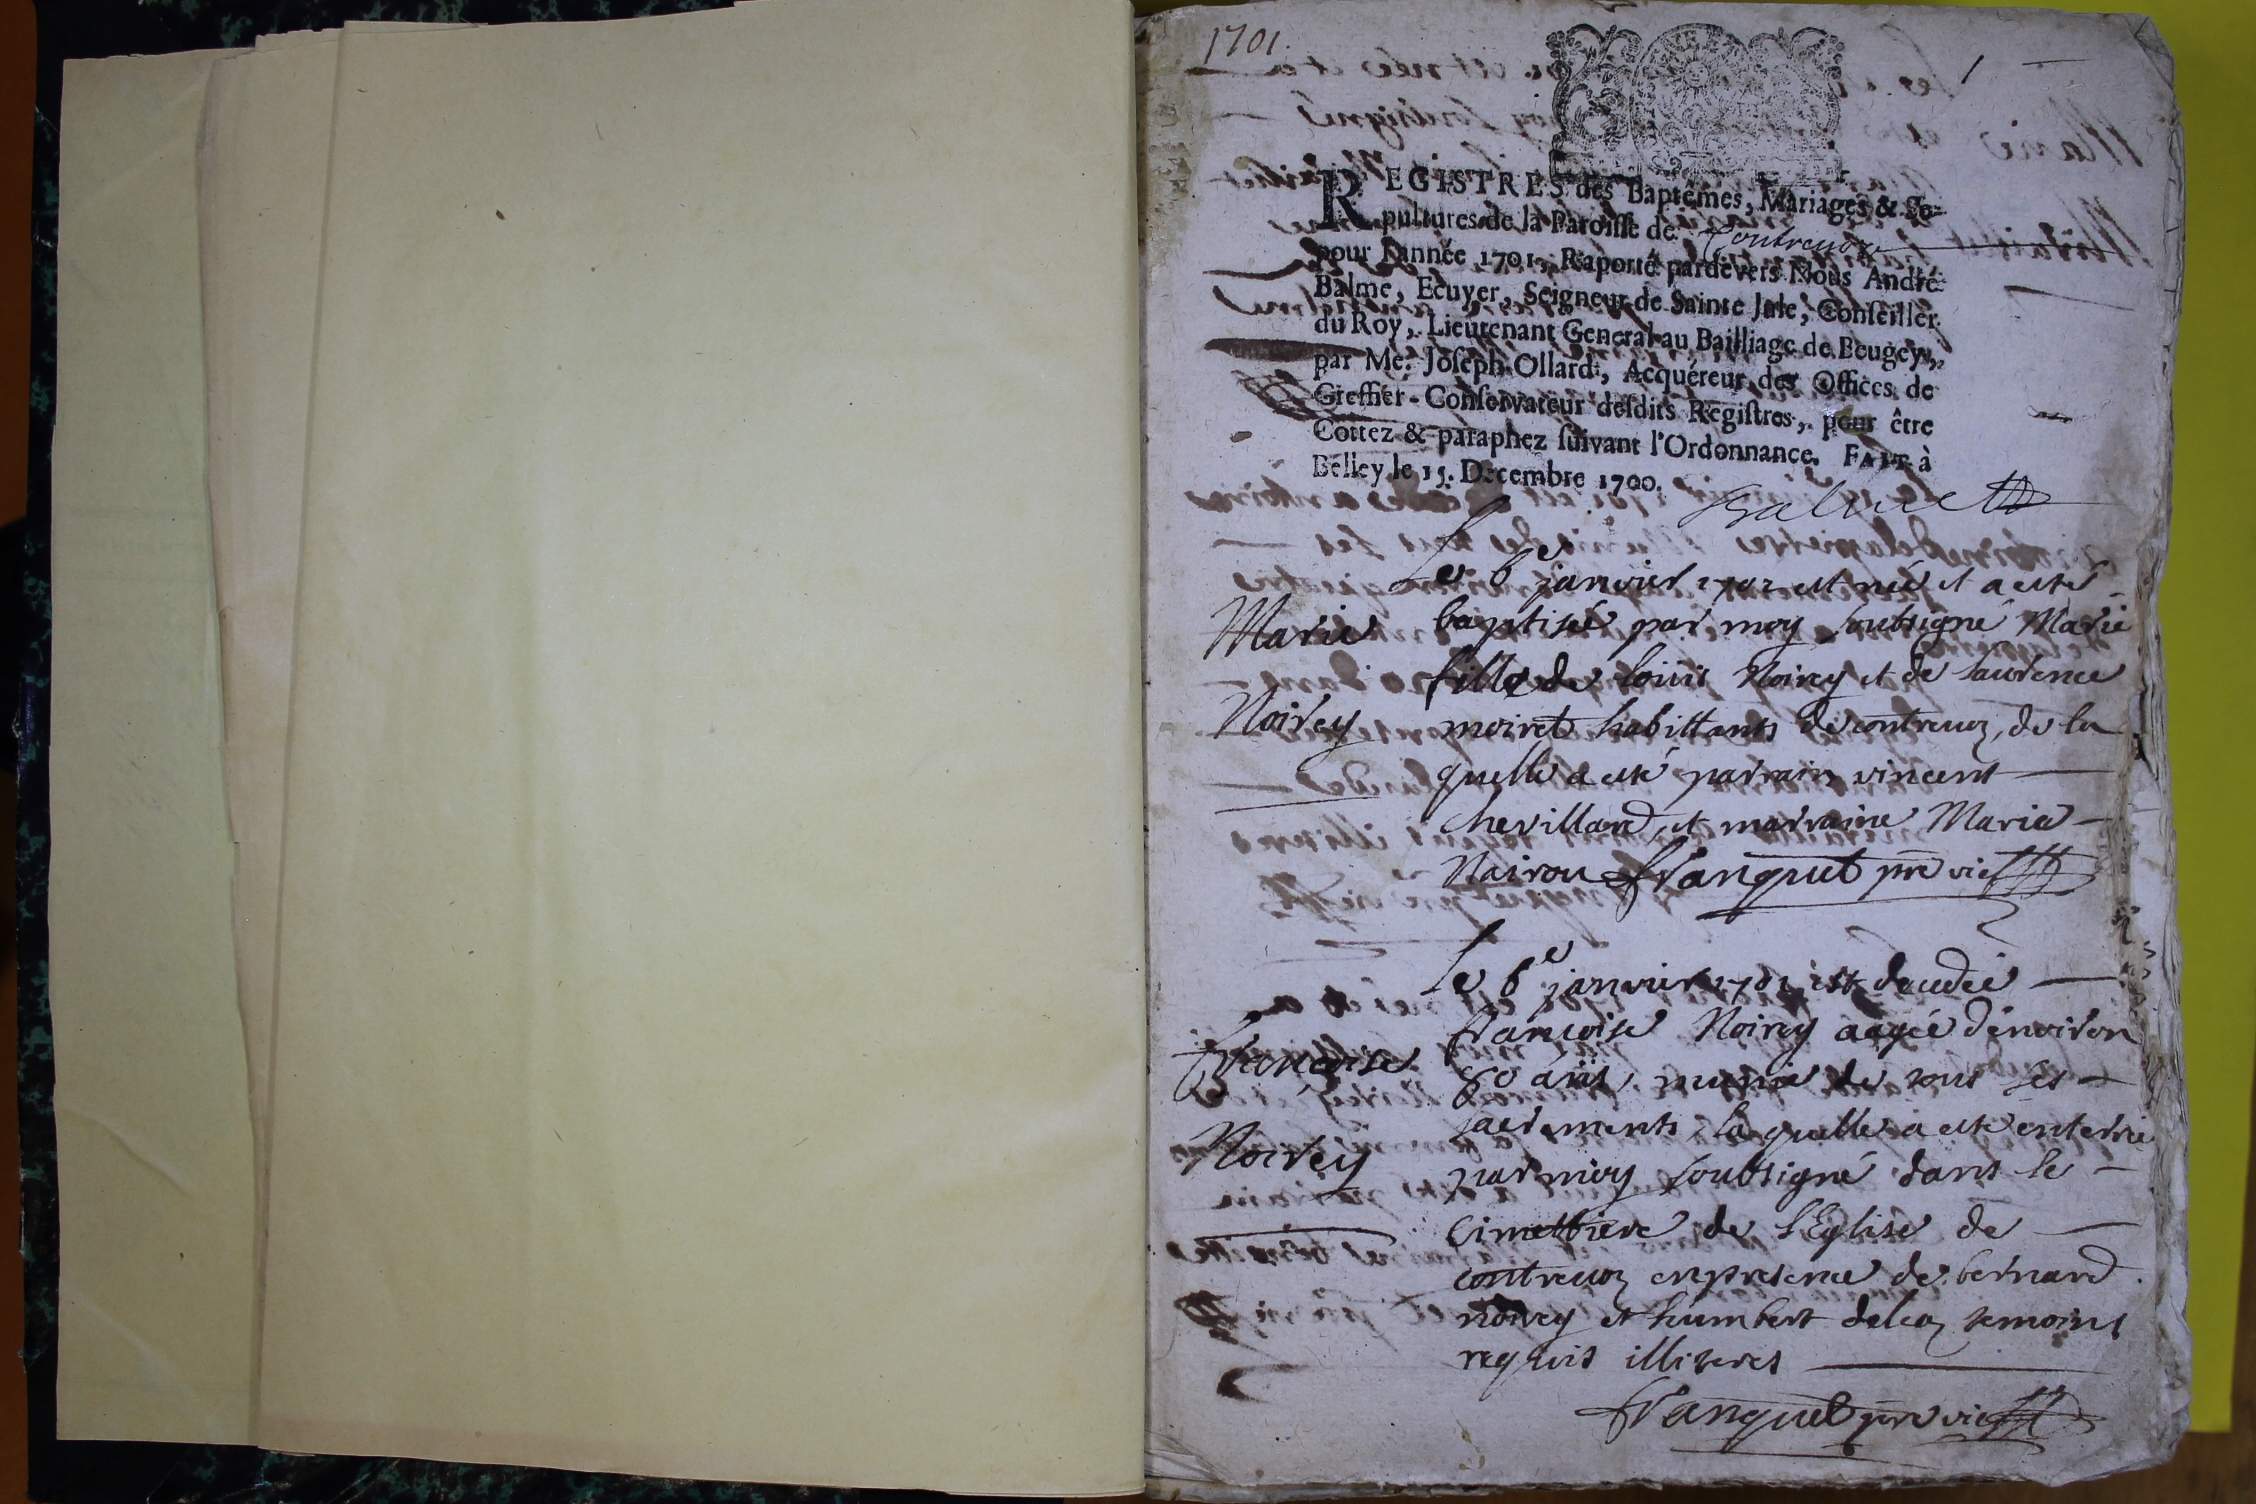 1701.
1
REGISTRES des Baptêmes, Mariages & Se-
pultures de la Paroisse de Contrevoz
pour l'année 1701, Raporté pardevers Nous André
Balme, Ecuyer, Seigneur de Sainte Jule, Conseiller
du Roy, Lieutenant General au Bailliage de Beugey,
par Me. Joseph Ollard, Acquéreur des Offices de
Greffier-Conservateur desdits Registres, pour être
Cottez & paraphez suivant l'Ordonnance. FAIT à
Belley le 15. Decembre 1700.
Balme
Le 6e janvier 1701 est née et a esté
Marie
baptisée par moy soubsigné Marie
fille de louis Noirey et de laurence
Noirey
moiret habittants de contrevoz, de la
quelle a esté parrain vincent
chevillard, et marraine Marie
Nairou Franquet pre vic
Le 6e janvier 1701 est decedée
françoise Noirey aagée d'environ
Françoise
60 ans, munie de tous ses
sacrements, la quelle a esté enterrée
Noirey
par moy soubsigné dans le
Cimettiere de l'Eglise de
contrevoz en presence de bernard
noirey et humbert deléaz temoins
requis illiteres
Franquet pre vic